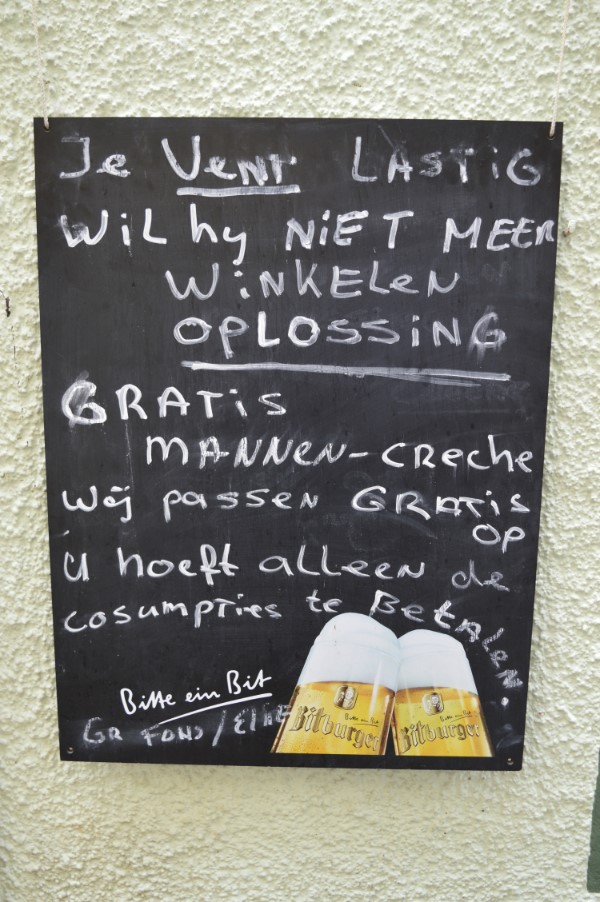 Je Vent LASTiG
WiL hy NiET MEER
WiNKELeN
OPLOSSiNG
GRATiS
MANNeN-CRecHe
Wij passen GRATiS
OP
U hoeft alleen de
cosumpties te BeTALeN.
Bitte ein Bit
GR FONS /
Bitte ein Bit
Bitburger
Bitte ein Bit
Bitburger